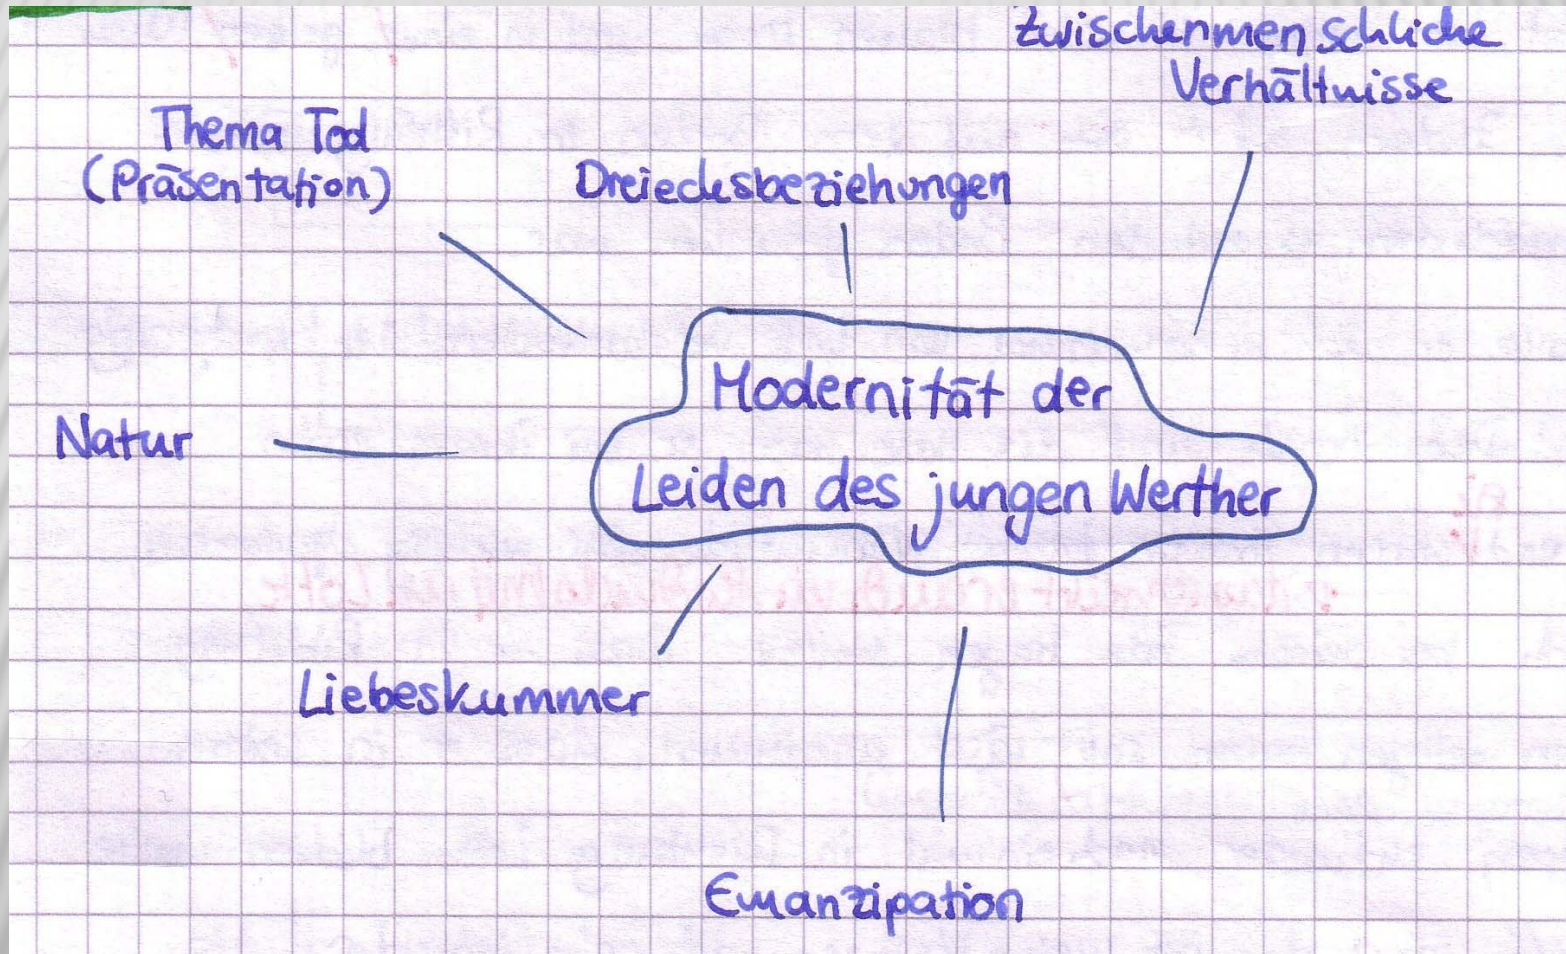 Zwischenmenschliche
Verhältnisse
Thema Tod
(Präsentation)
Dreiecksbeziehungen
Modernität der
Leiden des jungen Werther
Natur
Liebeskummer
Emanzipation